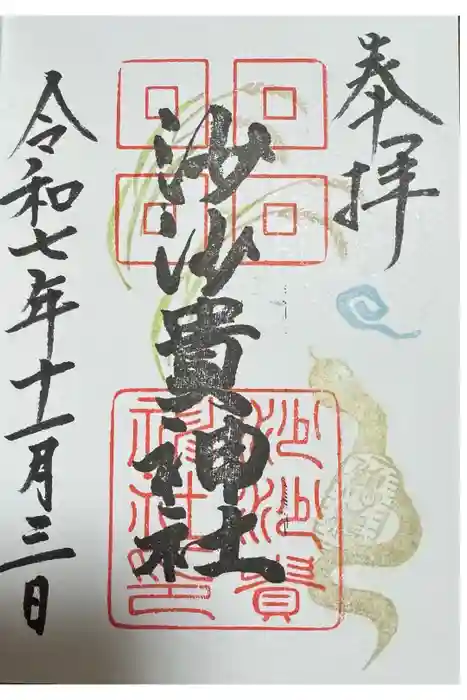 奉拝
沙沙貴神社
沙沙貴
神社印
令和七年十一月三日